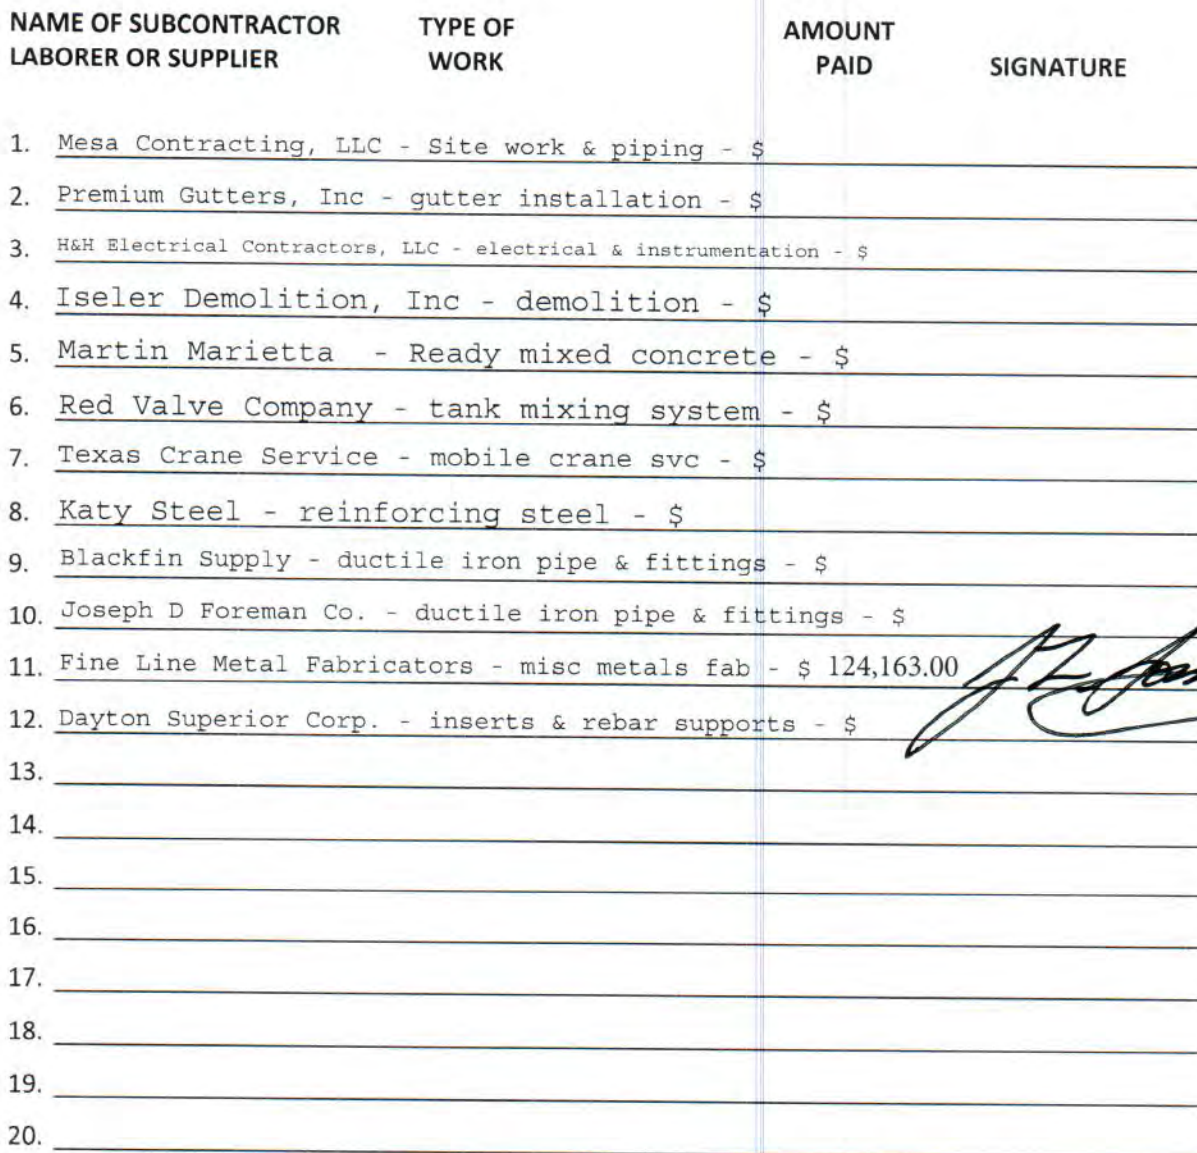 NAME OF SUBCONTRACTOR TYPE OF AMOUNT
LABORER OR SUPPLIER WORK PAID SIGNATURE
1. Mesa Contracting, LLC - Site work & piping - $
2. Premium Gutters, Inc - gutter installation - $
3. H&H Electrical Contractors, LLC - electrical & instrumentation - $
4. Iseler Demolition, Inc - demolition - $
5. Martin Marietta - Ready mixed concrete - $
6. Red Valve Company - tank mixing system - $
7. Texas Crane Service - mobile crane svc - $
8. Katy Steel - reinforcing steel - $
9. Blackfin Supply - ductile iron pipe & fittings - $
10. Joseph D Foreman Co. - ductile iron pipe & fittings - $
11. Fine Line Metal Fabricators - misc metals fab - $ 124,163.00
12. Dayton Superior Corp. - inserts & rebar supports - $
13.
14.
15.
16.
17.
18.
19.
20.